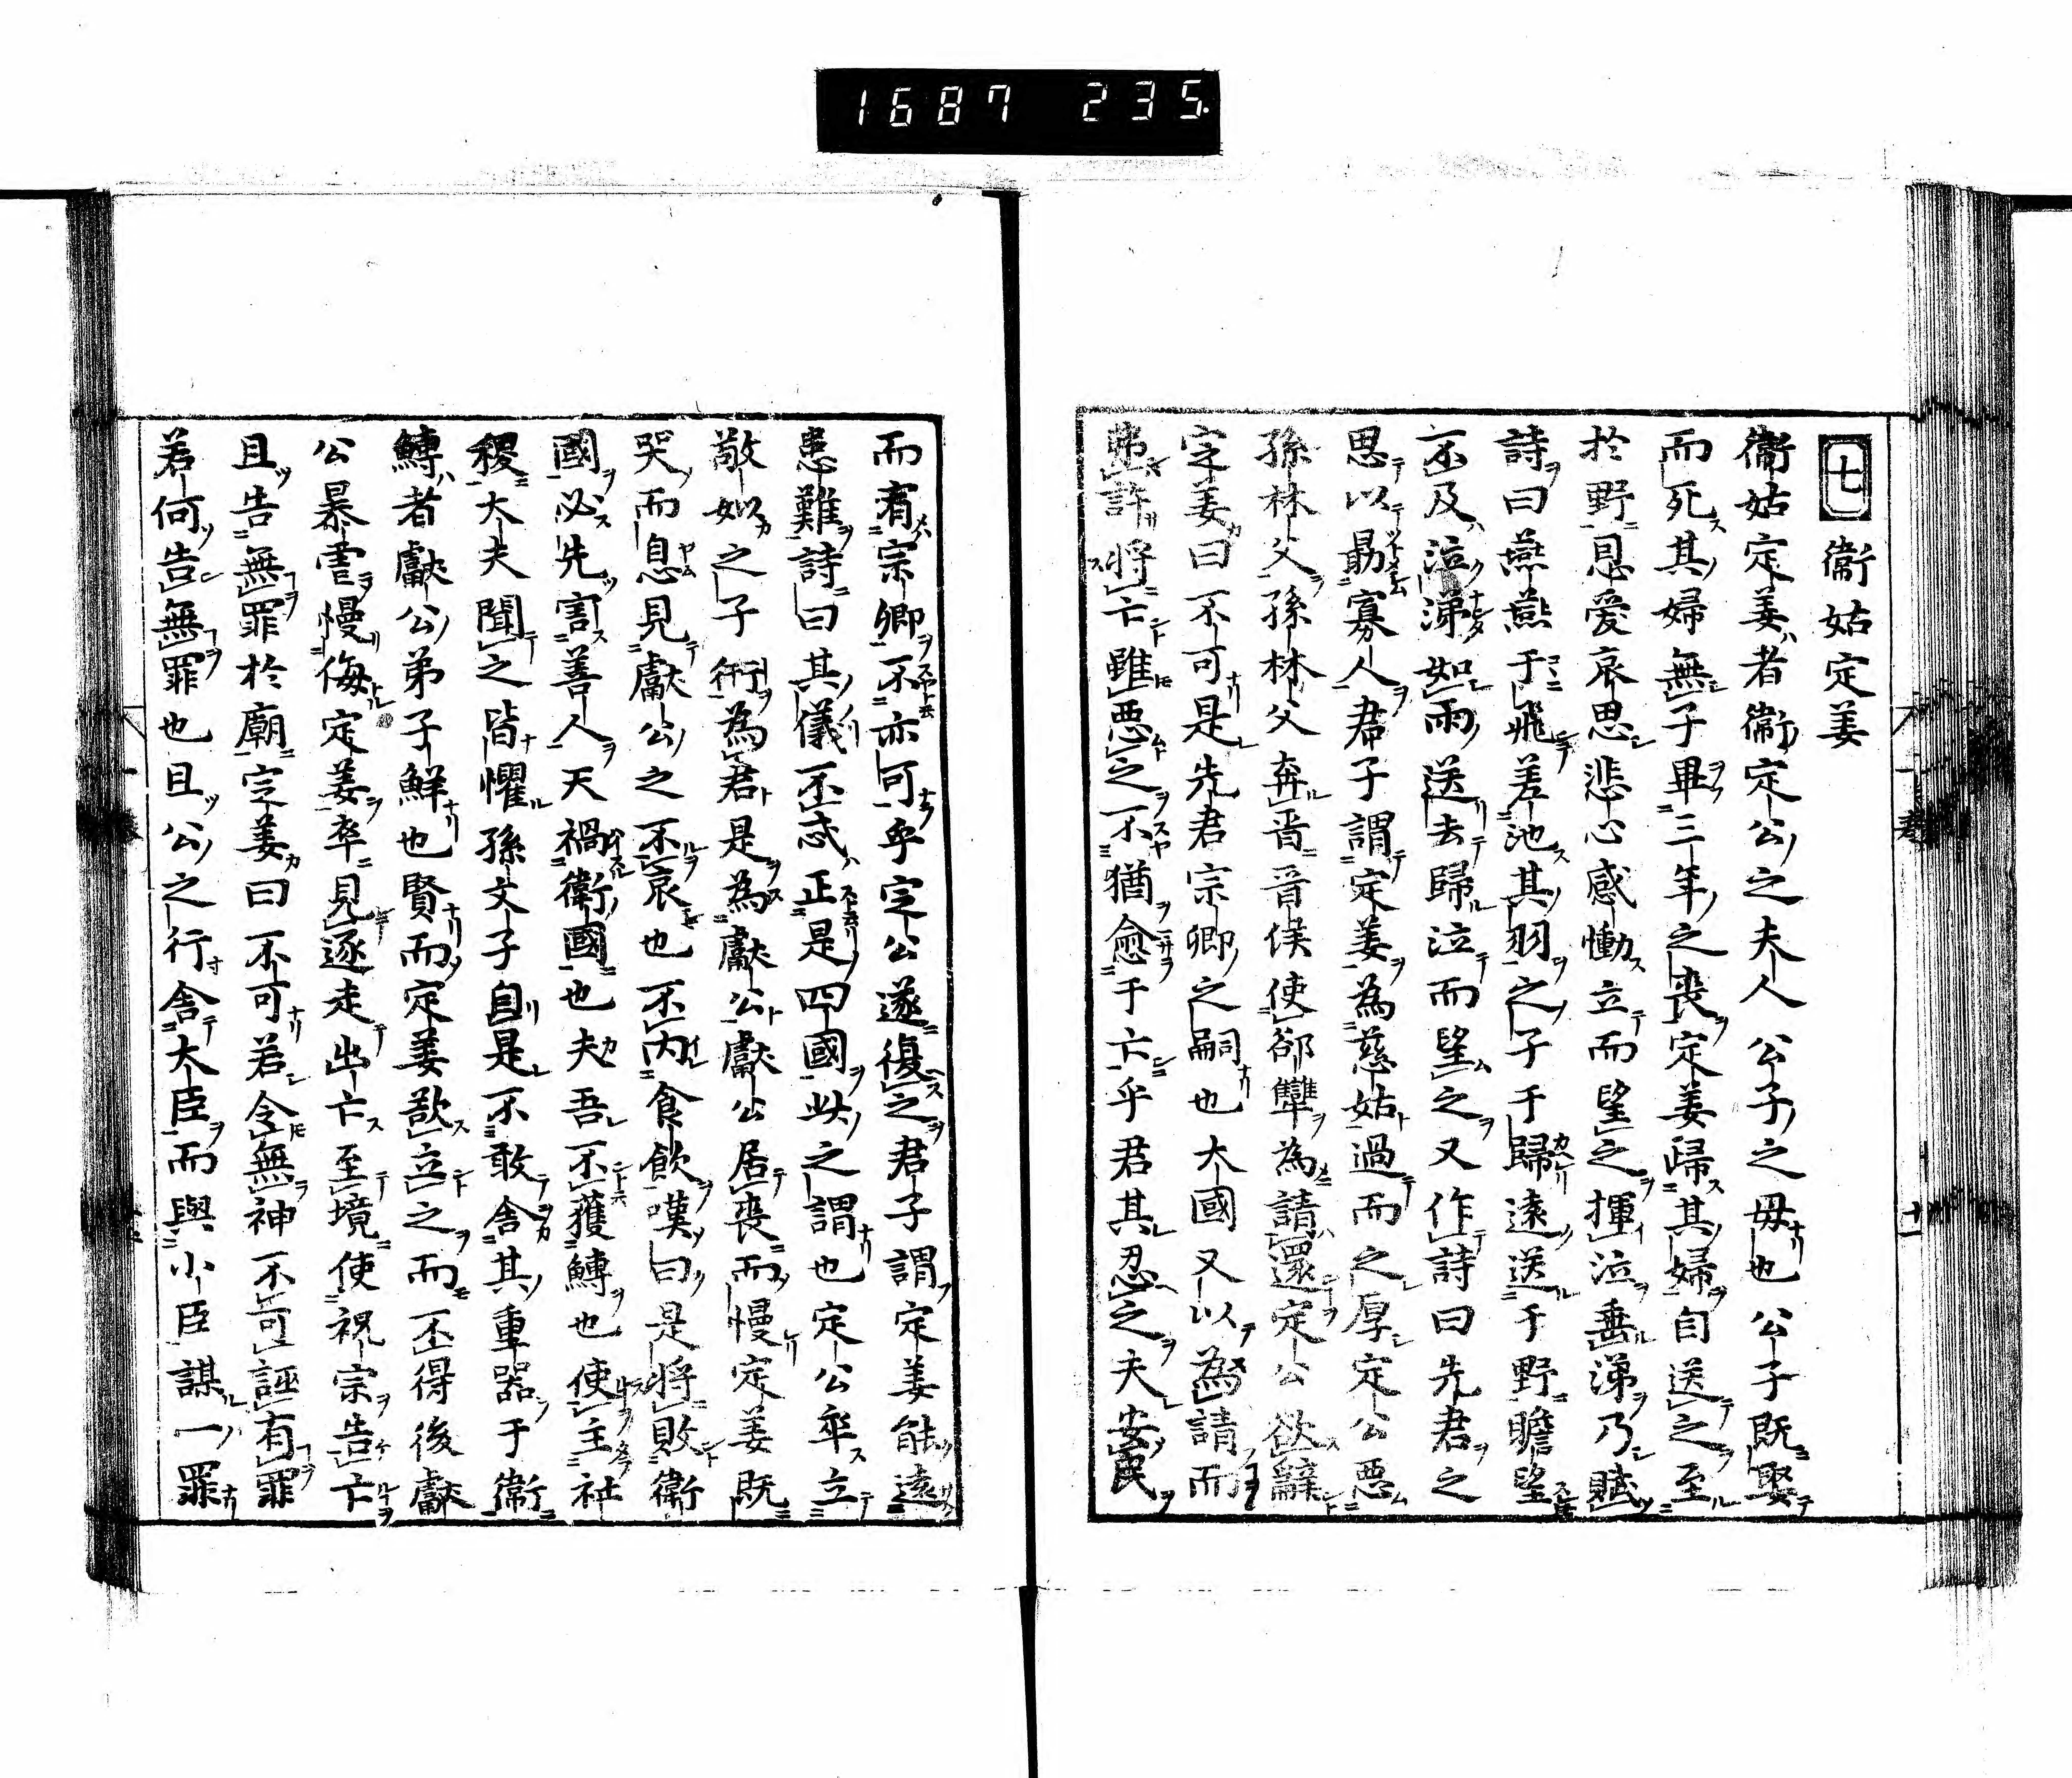 1687 235.
七 衞姑定姜
衞姑定姜者衞定公之夫人公子之毋也公子既娶
而死其婦無子畢三年之喪定姜歸其婦自送之至
於野恩愛哀思悲心感慟立而望之揮泣垂涕乃賦
詩曰燕燕于飛差池其羽之子于歸遠送于野瞻望
不及泣涕如雨送去歸泣而望之又作詩曰先君之
思以勗寡人君子謂定姜為慈姑過而之厚定公惡
孫林父孫林父奔晋晋侯使郤犨為請還定公欲辭
定姜曰不可是先君宗卿之嗣也大國又以為請而
弗許將亡雖惡之不猶愈于亡乎君其忍之夫安民
而宥宗卿不亦可乎定公遂復之君子謂定姜能遠
患難詩曰其儀不忒正是四國此之謂也定公卒立
敬姒之子衎為君是為獻公獻公居喪而慢定姜既
哭而息見獻公之不哀也不内食飲嘆曰是將敗衞
國必先害善人天禍衞國也夫吾不獲鱄也使主社
稷大夫聞之皆懼孫文子自是不敢舍其重器于衞
鱄者獻公弟子鮮也賢而定姜欲立之而不得後獻
公暴虐慢侮定姜卒見逐走出亡至境使祝宗告亡
且告無罪於廟定姜曰不可若令無神不可誣有罪
若何告無罪也且公之行舍大臣而與小臣謀一罪